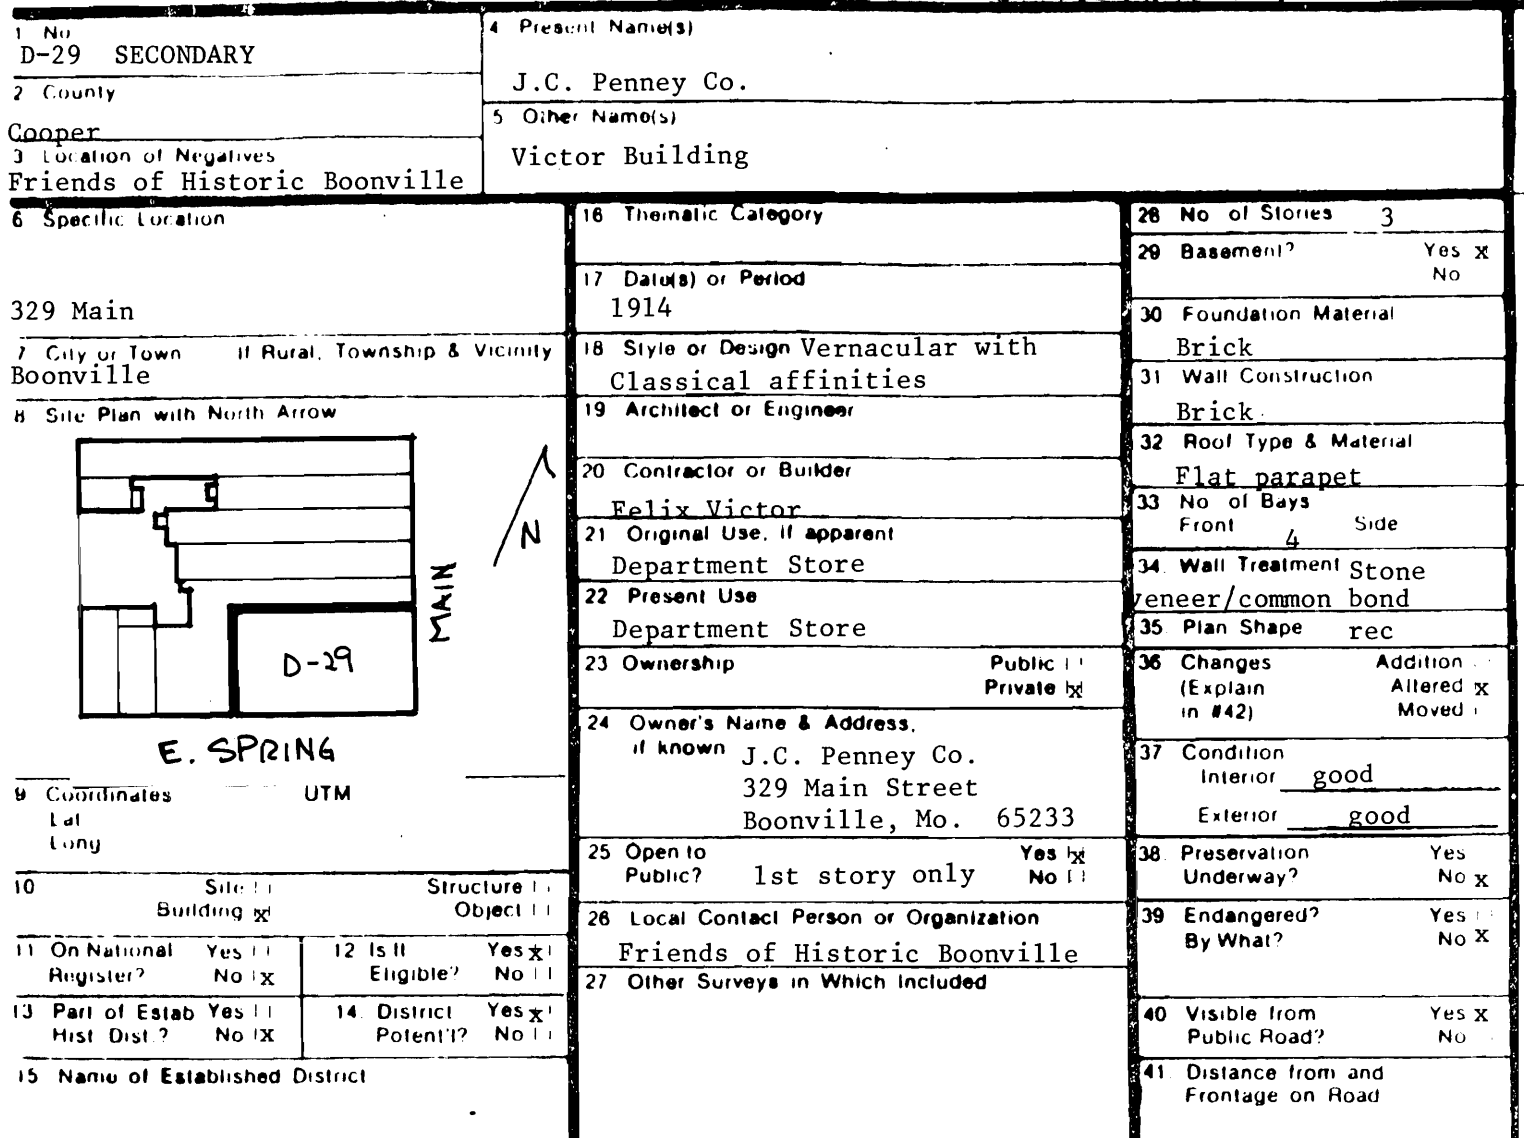 1 No
D-29 SECONDARY
2 County
Cooper
3 Location of Negatives
Friends of Historic Boonville
4 Present Name(s)
J.C. Penney Co.
5 Other Name(s)
Victor Building
6 Specific Location
329 Main
7 City or Town If Rural, Township & Vicinity
Boonville
8 Site Plan with North Arrow
N
MAIN
D-29
E. SPRING
9 Coordinates UTM
Lat
Long
10 Site Structure
Building x Object
11 On National Yes
Register? No x
12 Is It Yes x
Eligible? No
13 Part of Estab Yes
Hist Dist.? No x
14. District Yes x
Potent'l? No
15 Name of Established District
16 Thematic Category
17 Date(s) or Period
1914
18 Style or Design Vernacular with
Classical affinities
19 Architect or Engineer
20 Contractor or Builder
Felix Victor
21 Original Use, if apparent
Department Store
22 Present Use
Department Store
23 Ownership Public
Private x
24 Owner's Name & Address,
if known J.C. Penney Co.
329 Main Street
Boonville, Mo. 65233
25 Open to Yes x
Public? 1st story only No
26 Local Contact Person or Organization
Friends of Historic Boonville
27 Other Surveys in Which Included
28 No of Stories 3
29 Basement? Yes x
No
30 Foundation Material
Brick
31 Wall Construction
Brick
32 Roof Type & Material
Flat parapet
33 No of Bays
Front 4 Side
34. Wall Treatment Stone
veneer/common bond
35 Plan Shape rec
36 Changes Addition
(Explain Altered x
in #42) Moved
37 Condition
Interior good
Exterior good
38 Preservation Yes
Underway? No x
39 Endangered? Yes
By What? No X
40 Visible from Yes x
Public Road? No
41. Distance from and
Frontage on Road